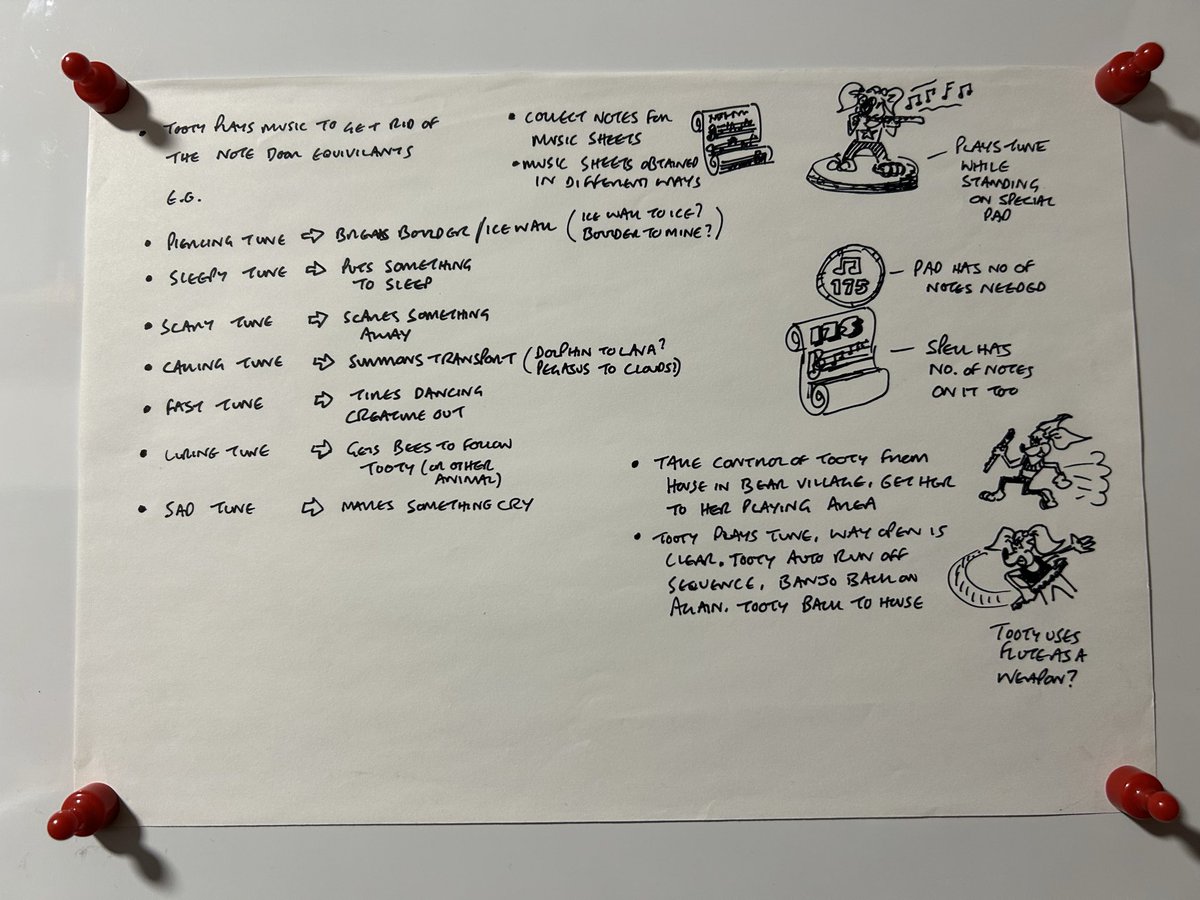 • TOOTY PLAYS MUSIC TO GET RID OF
THE NOTE DOOR EQUIVILANTS
E.G.
• PIERCING TUNE ⇨ BREAKS BOULDER/ICE WALL (ICE WALL TO ICE?
BOULDER TO MINE?)
• SLEEPY TUNE ⇨ PUTS SOMETHING
TO SLEEP
• SCARY TUNE ⇨ SCARES SOMETHING
AWAY
• CALLING TUNE ⇨ SUMMONS TRANSPORT (DOLPHIN TO LAVA?
PEGASUS TO CLOUDS?)
• FAST TUNE ⇨ TIRES DANCING
CREATURE OUT
• LURING TUNE ⇨ GETS BEES TO FOLLOW
TOOTY (OR OTHER
ANIMAL)
• SAD TUNE ⇨ MAKES SOMETHING CRY
• COLLECT NOTES FOR
MUSIC SHEETS
• MUSIC SHEETS OBTAINED
IN DIFFERENT WAYS
PLAYS TUNE
WHILE
STANDING
ON SPECIAL
PAD
175
PAD HAS NO OF
NOTES NEEDED
175
SPELL HAS
NO. OF NOTES
ON IT TOO
• TAKE CONTROL OF TOOTY FROM
HOUSE IN BEAR VILLAGE, GET HER
TO HER PLAYING AREA
• TOOTY PLAYS TUNE, WAY OPEN IS
CLEAR. TOOTY AUTO RUN OFF
SEQUENCE, BANJO BACK ON
AGAIN. TOOTY BACK TO HOUSE
TOOTY USES
FLUTE AS A
WEAPON?